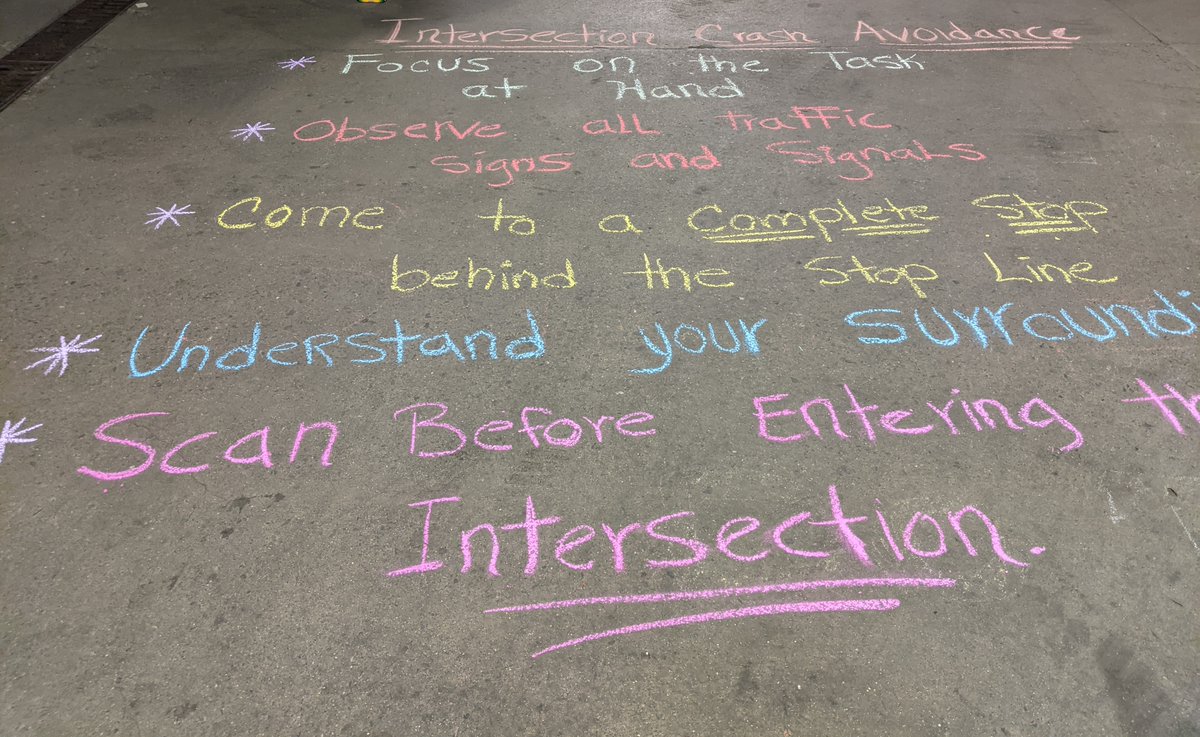 Intersection Crash Avoidance
* Focus on the Task
at Hand
* Observe all traffic
signs and Signals
* Come to a Complete Stop
behind the Stop Line
* Understand your surround
* Scan Before Entering th
Intersection.